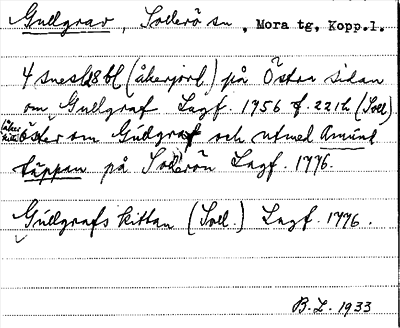 Gullgrav, Sollerö sn, Mora tg, Kopp.l.
4 snesl 28 bl (åkerjord) på Östra sidan
om Gullgraf Lagf. 1756 f. 221 b (Soll)
Öster om Gullgraf och utmed Amund
täppan på Sollerön Lagf. 1776.
Gullgrafs kittan (Soll.) Lagf. 1776.
B.L. 1933